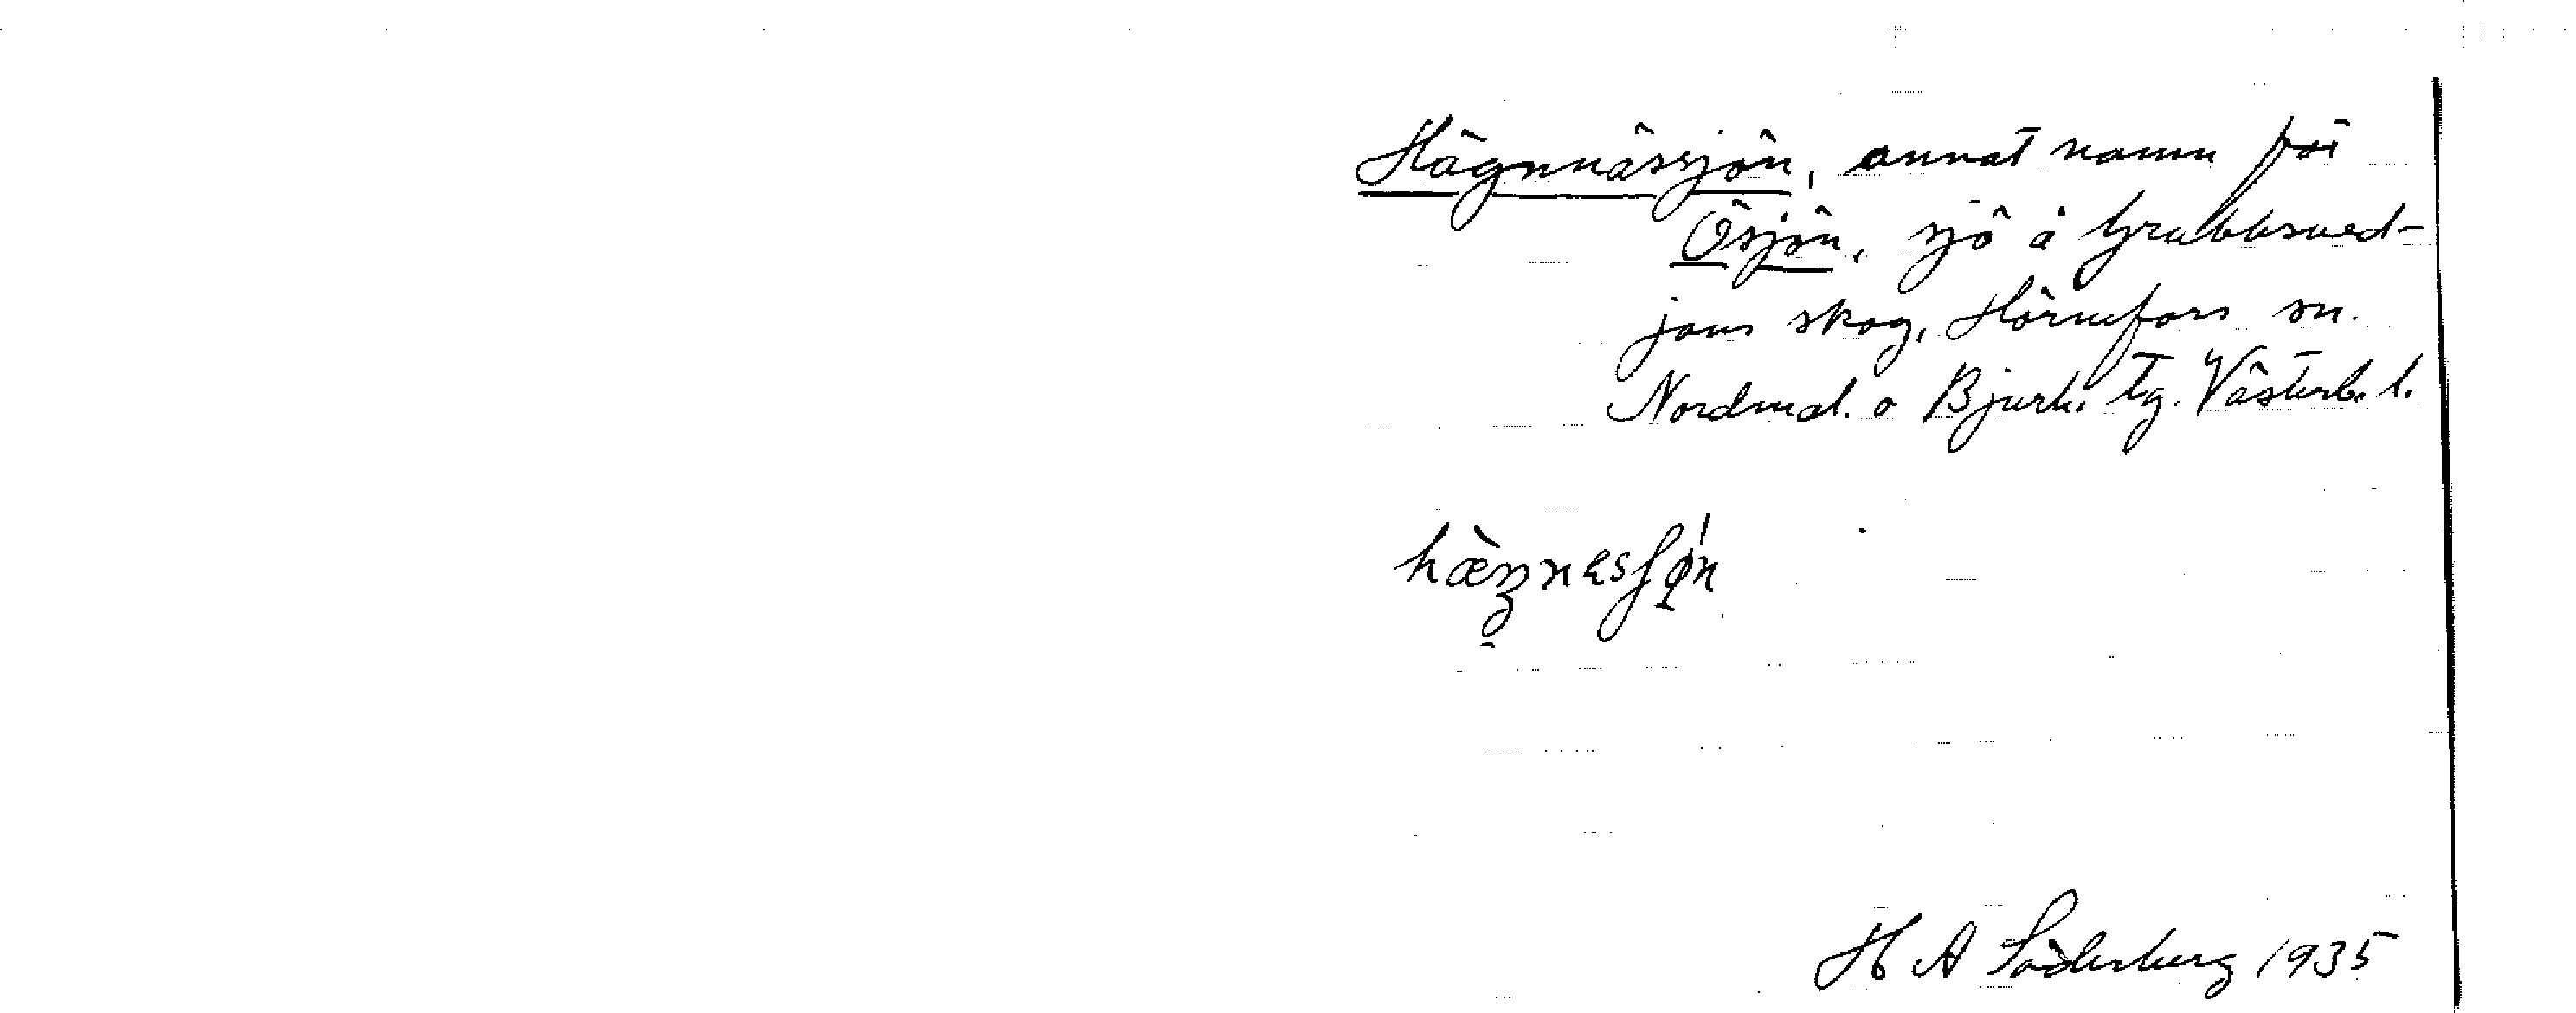 Hägnnässjön, annat namn för
Ösjön, sjö å Grubbsved-
jans skog, Hörnefors sn.
Nordmal. o Bjurh. tg. Västerb. l.
H A Söderberg 1935